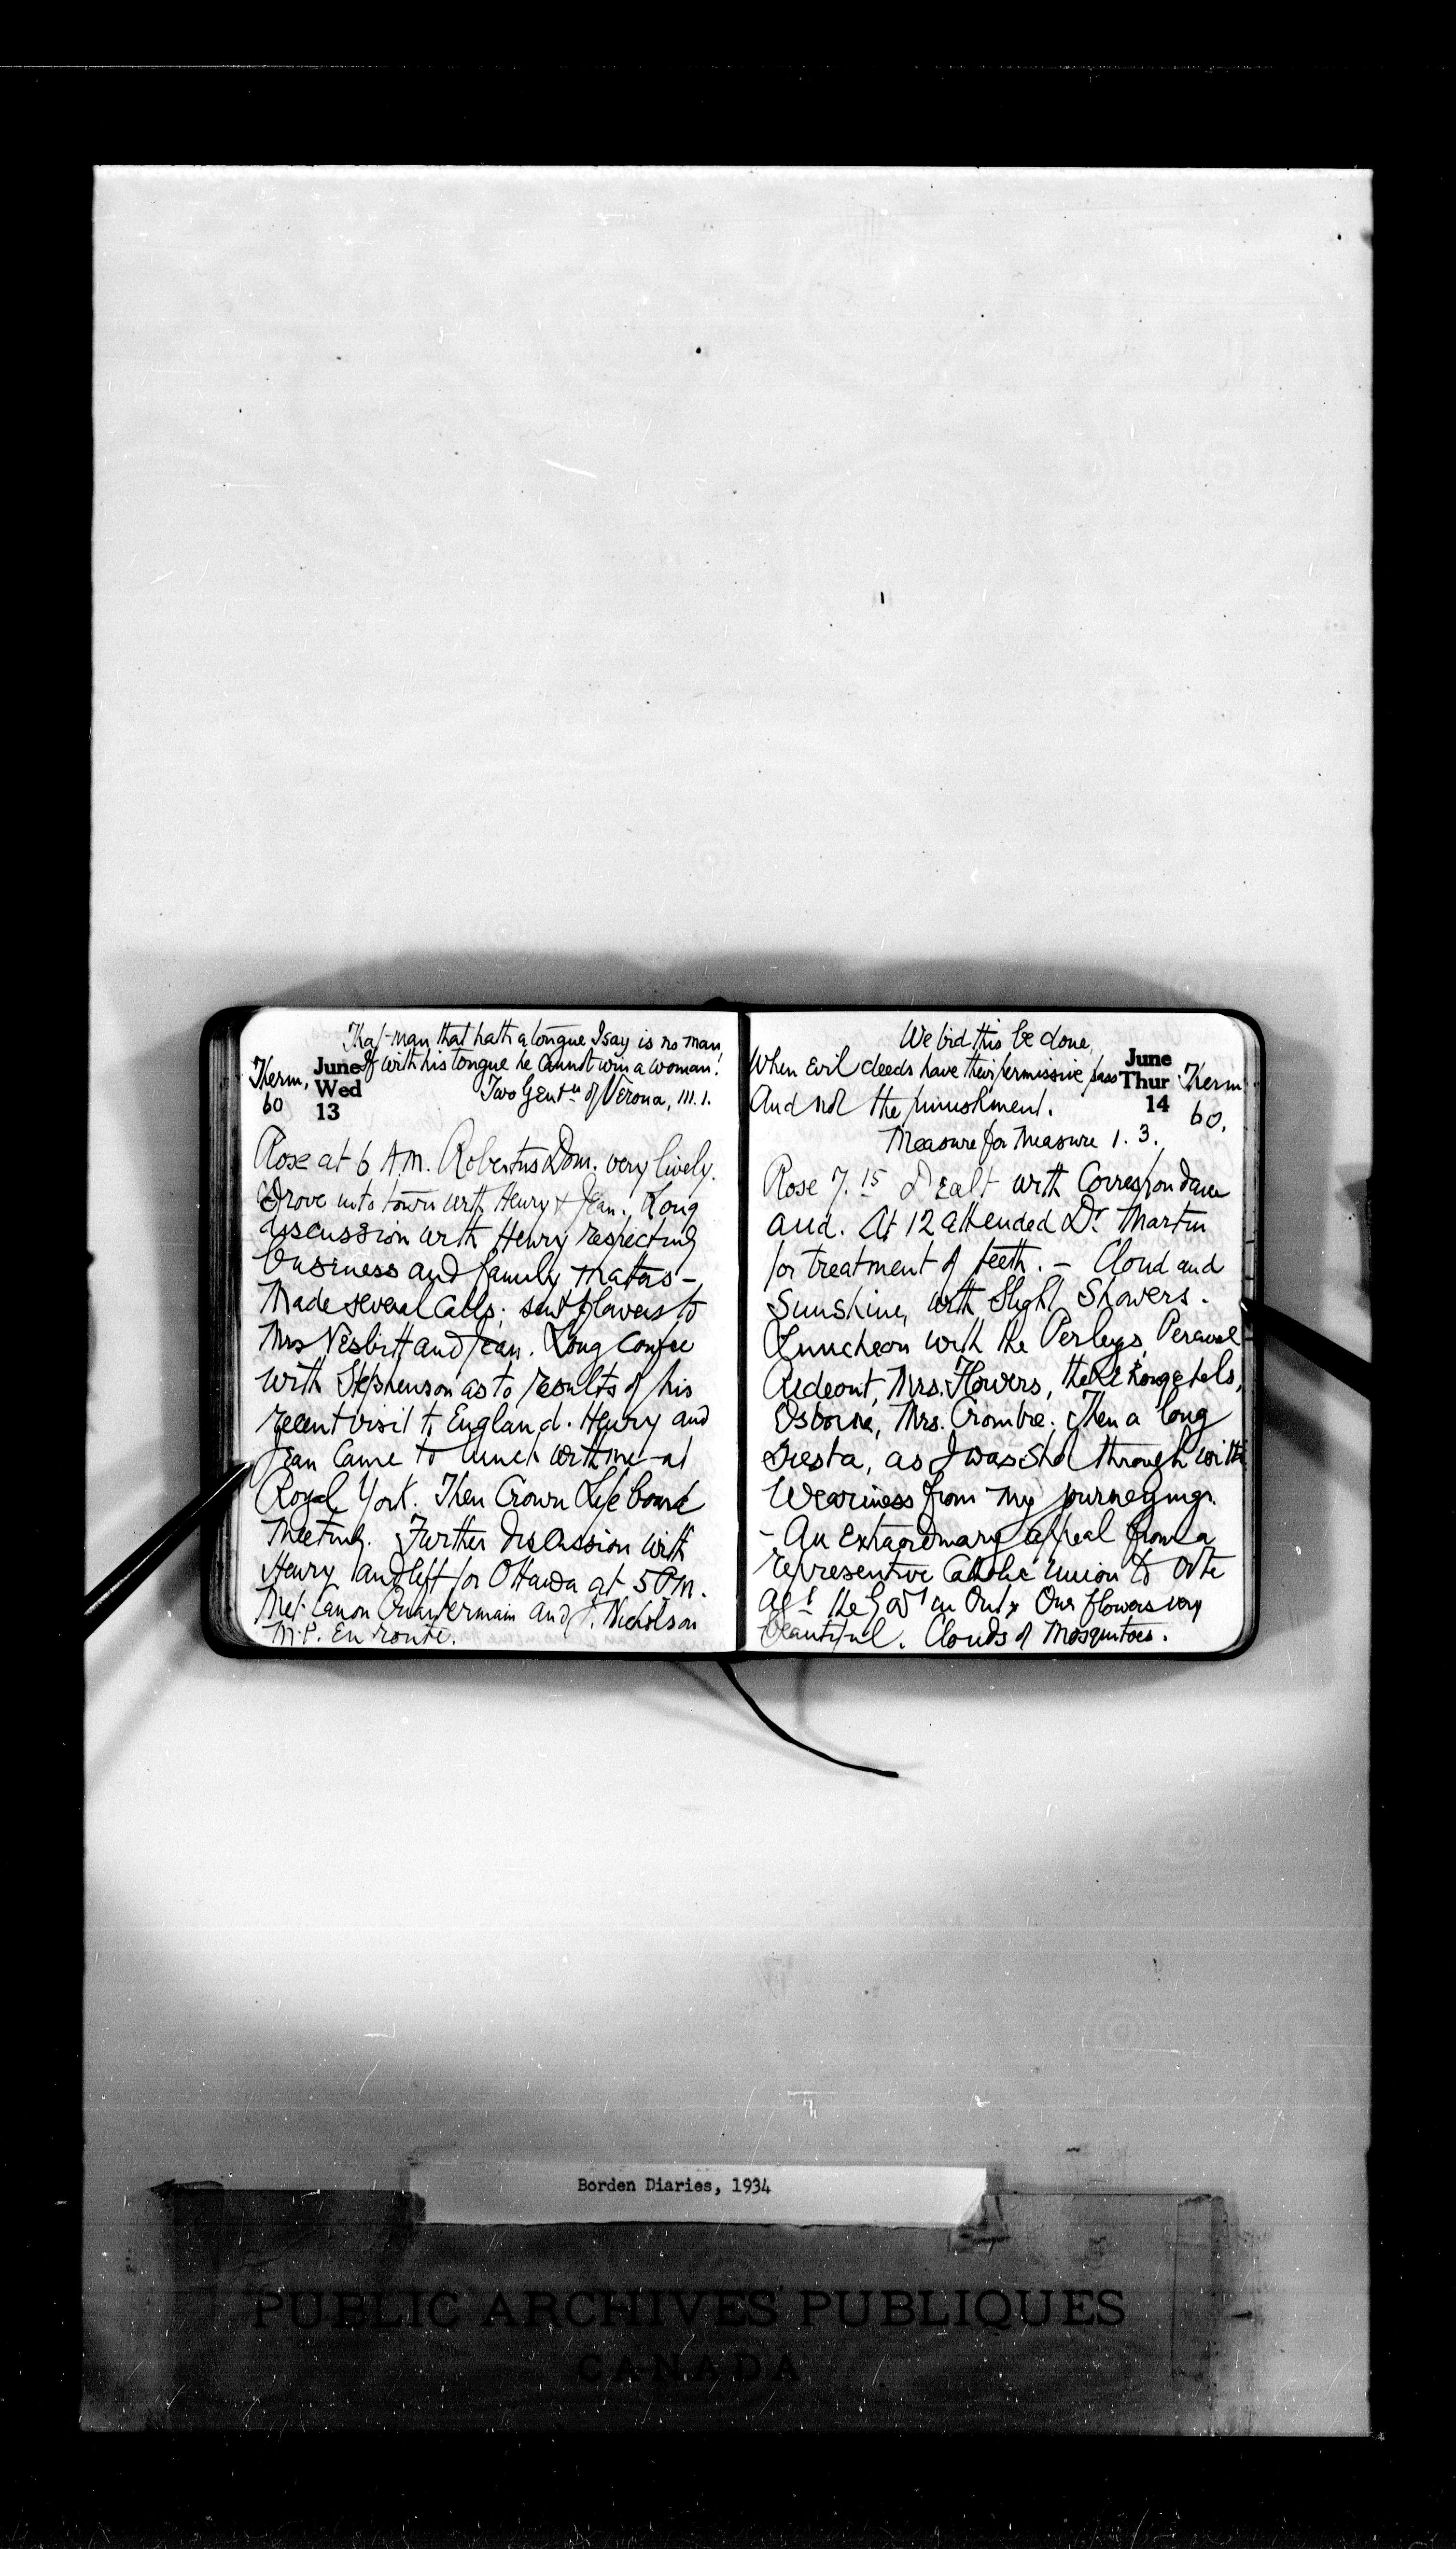 That man that hath a tongue I say is no man,
If with his tongue he cannot win a woman!
Two Gentn of Verona, III. 1.
Therm, 60
June
Wed
13
Rose at 6 A.M. Robertus Dom. very lively.
Drove into town with Henry & Jean. Long
discussion with Henry respecting
business and family matters –
Made several calls; sent flowers to
Mrs Nesbitt and Jean. Long confce
with Stephenson as to results of his
recent visit to England. Henry and
Jean came to lunch with me at
Royal York. Then Crown Life board
meeting. Further discussion with
Henry and left for Ottawa at 5 P.M.
Met Canon Quartermain and Nicholson
M.P. en route.
We bid this be done,
When evil deeds have their permissive pass
And not the punishment.
Measure for Measure 1. 3.
June
Thur
14
Therm
60.
Rose 7.15 Dealt with correspondance
and. At 12 attended Dr Martin
for treatment of teeth. – Cloud and
Sunshine, with slight showers.
Luncheon with the Perleys, Perceval
Rideout, Mrs. Flowers, the
Osborne, Mrs. Crombie. Then a long
siesta, as I was shot through with
weariness from my journeyings.
– An extraordinary appeal from a
representive Catholic union to vote
agst the Govt in Ont. Our flowers very
beautiful. Clouds of mosquitoes.
Borden Diaries, 1934
PUBLIC ARCHIVES PUBLIQUES
CANADA